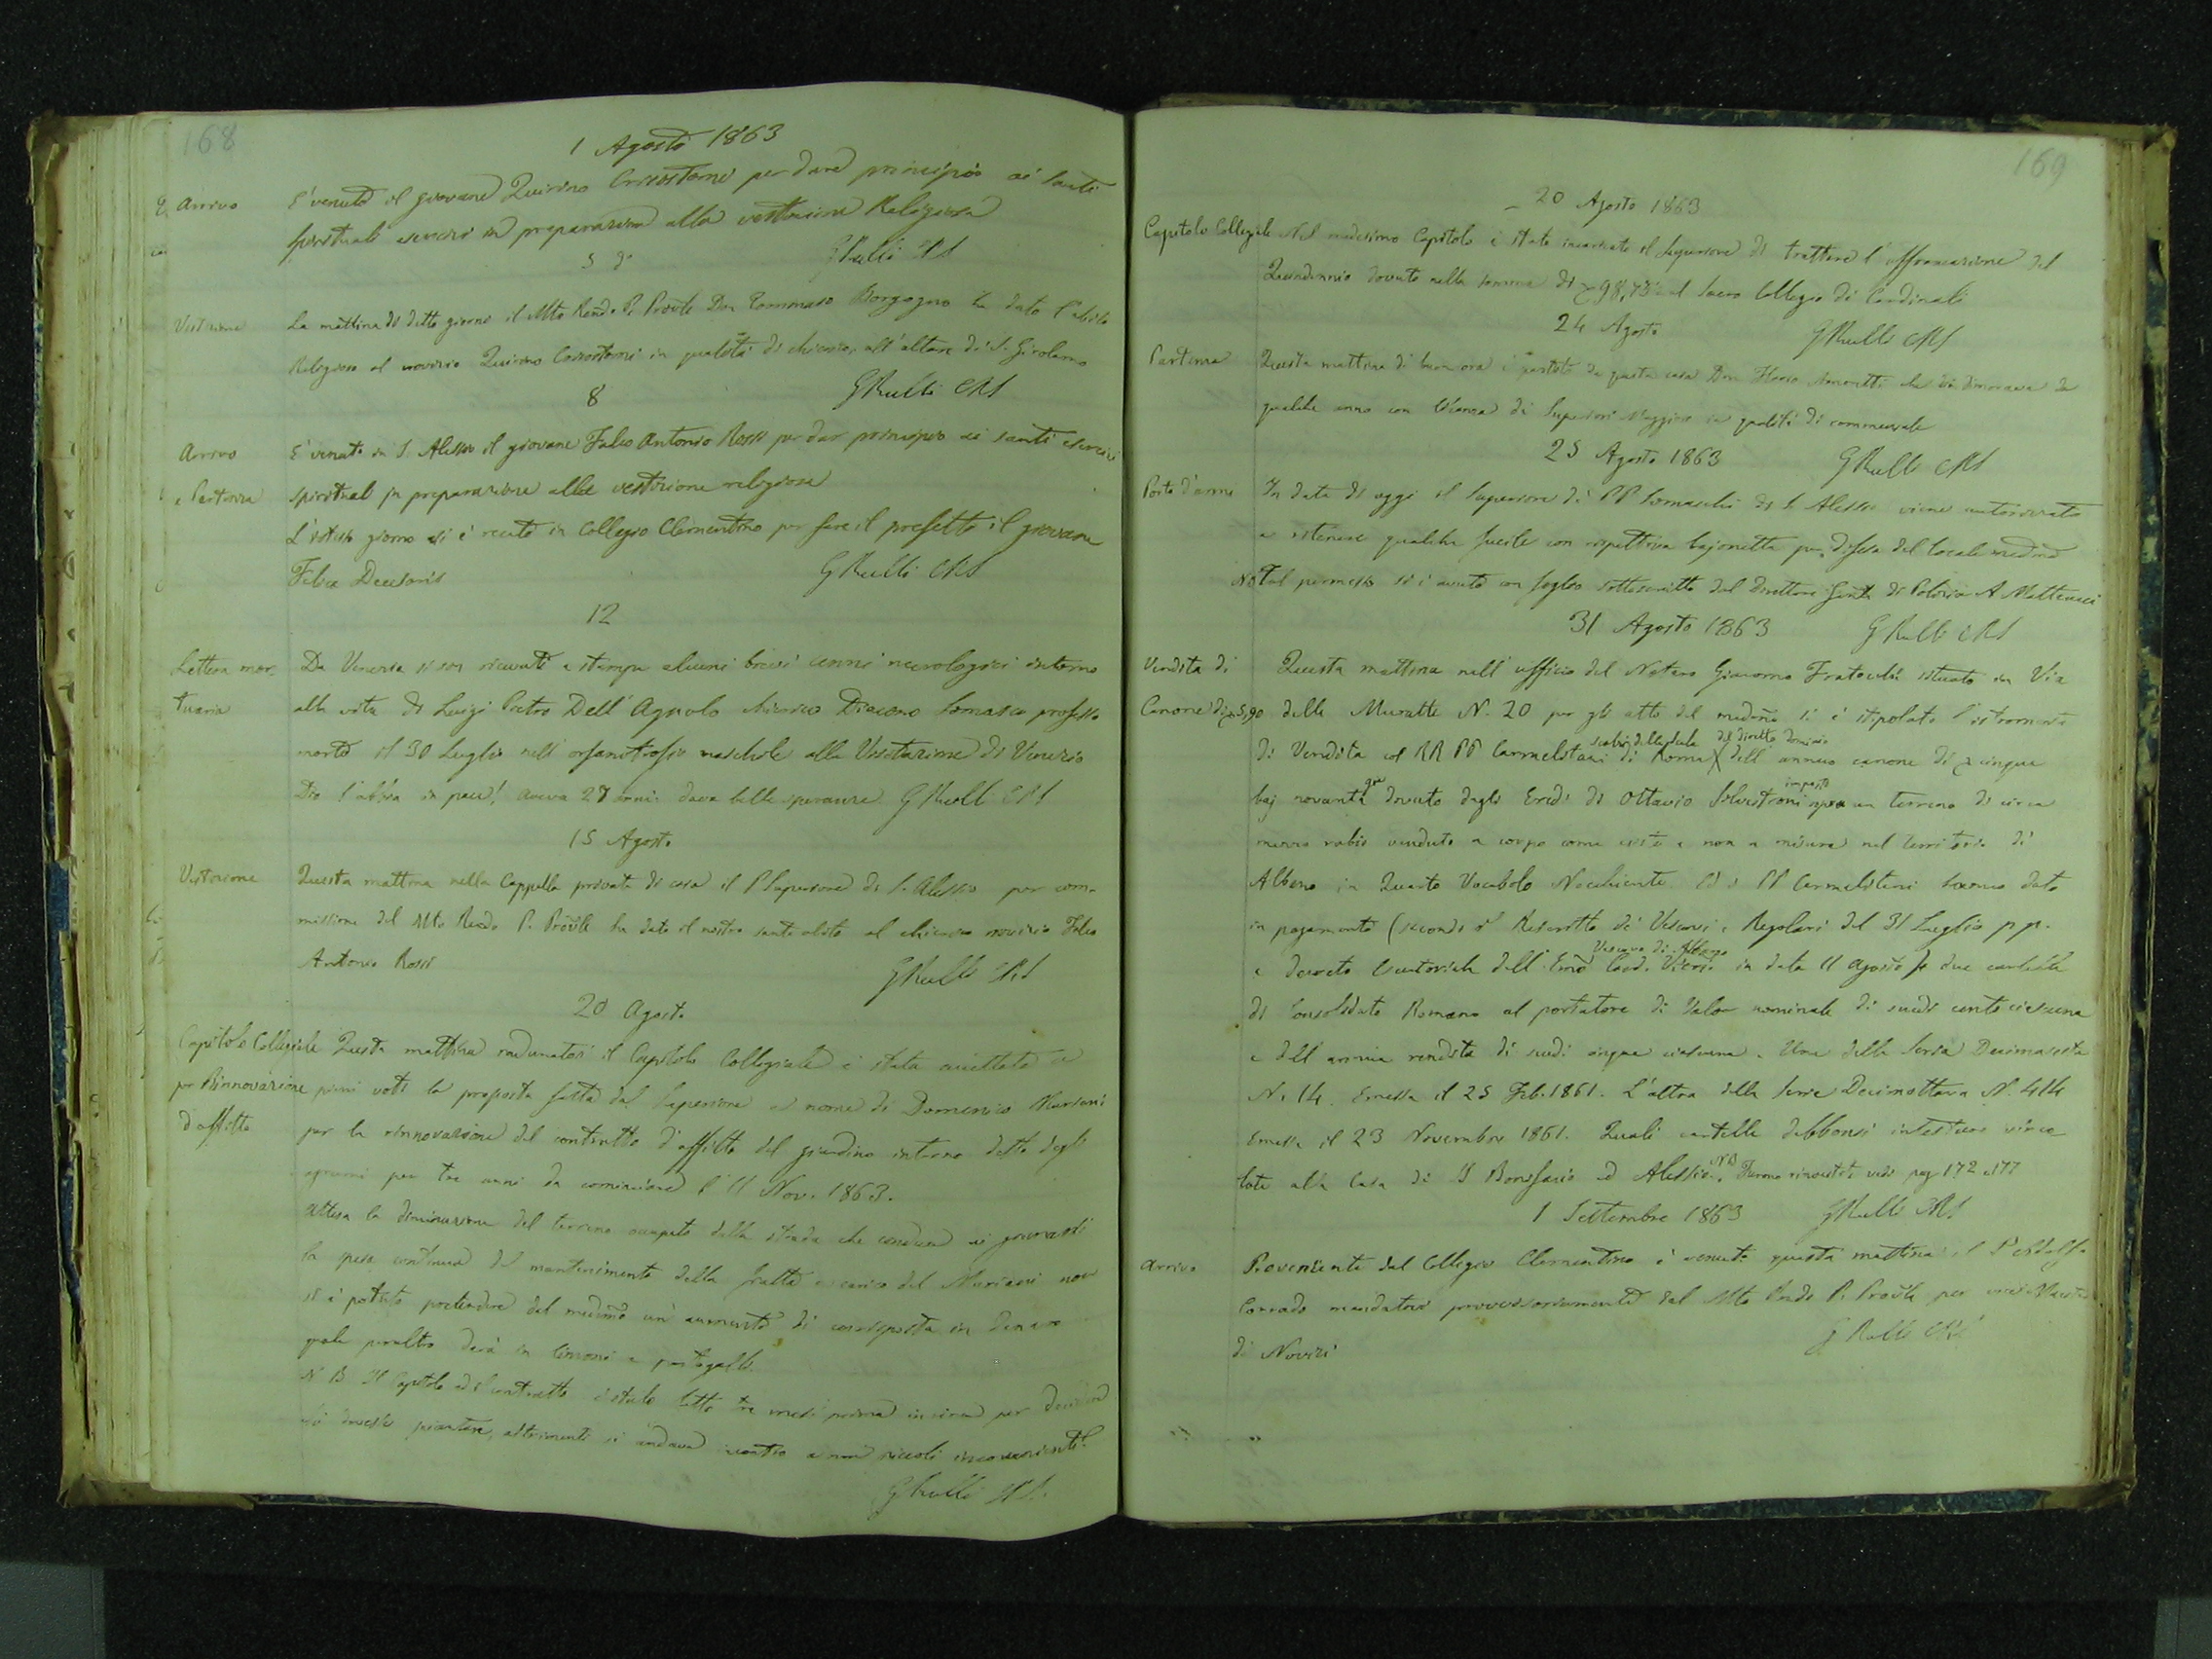 168
1 Agosto 1863
Arrivo E' venuto il giovane Quirino Crisostomi per dare principio ai santi
spirituali esercizi in preparazione alla vestizione Religiosa
GRulli CRS
5 do
Vestizione La mattina di detto giorno il Mto Rendo P. Provle Don Tommaso Borgogno ha dato l'abito
Religioso al novizio Quirino Crisostomi in qualità di chierico, all'altare di S. Girolamo
8 GRulli CRS
Arrivo E' venuto in S. Alessio il giovane Julio Antonio Rossi per dar principio ai santi esercizi
e Partenza spirituali in preparazione alla vestizione religiosa
L'istesso giorno si è recato in Collegio Clementino per fare il prefetto il giovane
Felice GRulli CRS
12
Lettera mor- Da Venezia si son ricevuti a stampa alcuni brevi cenni necrologici intorno
tuaria alla vita di Luigi Pietro Dell'Agnolo chierico Diacono Somasco professo
morto il 30 Luglio nell'orfanotrofio maschile alla Visitazione di Venezia
Dio l'abbia in pace! aveva 27 anni: dava belle speranze GRulli CRS
15 Agosto
Vestizione Questa mattina nella Cappella privata di casa il P Superiore di S. Alessio per com-
missione del Mto Rendo P. Provle ha dato il nostro santo abito al chierico novizio Julio
Antonio Rossi GRulli CRS
20 Agosto
Capitolo Collegiale Questa mattina radunatosi il Capitolo Collegiale è stata accettata a
per Rinnovazione pieni voti la proposta fatta dal Superiore a nome di Domenico Mariani
d'affitto per la rinnovazione del contratto d'affitto del giardino interno detto degli
agrumi per tre anni da cominciare l'11 Nov. 1863.
Attesa la diminuzione del terreno occupato dalla strada che conduce ai
la spesa continua del mantenimento della fratta a carico del Mariani non
si è potuto pretendere dal medmo un aumento di corrisposta in denaro
quale peraltro darà in limoni e portogalli.
N B Il Capitolo ed il contratto è stato fatto tre mesi prima in circa per
piantare, altrimenti si andava incontro a non piccoli inconvenienti.
GRulli CRS.
169
20 Agosto 1863
Capitolo Collegiale Nel medesimo Capitolo è stato incaricato il Superiore di trattare l'affrancazione del
Quindennio dovuto nella somma di 98,75 al Sacro Collegio di Cardinali
24 Agosto GRulli CRS
Partenza Questa mattina di buon ora è partito da questa casa Don Amoretti che vi dimorava da
qualche anno con licenza di Superiori Maggiori in qualità di commensale
25 Agosto 1863 GRulli CRS
Porto d'armi In data di oggi il Superiore di PP Somaschi di S. Alessio viene autorizzato
a ritenere qualche fucile con rispettiva bajonetta per difesa del locale medmo
NB Tal permesso si è avuto con foglio sottoscritto dal Direttore Gente di Polizia A Matteucci
31 Agosto 1863 GRulli CRS
Vendita di Questa mattina nell'ufficio del Notaro Giacomo Fratocchi situato in Via
Canone di 5,90 delle Muratte N. 20 per gli atti del medmo si è stipolato l'istromento
di Vendita coi RR PP Carmelitani scalzi della Scala di Roma del diretto dominio dell'annuo canone di cinque
baj novanta dovuto dagli Eredi di Ottavio Silvestroni imposto sopra un terreno di circa
mezzo rubio venduto a corpo come esiste e non a misura nel territorio di
Albano in Quarto Vocabolo Ed i PP Carmelitani hanno dato
in pagamento (secondo il Rescritto di Vescovi e Regolari del 31 Luglio p p.
e decreto esecutoriale dell'Emo Card. Vescovo di Albano in data 11 agosto due cartelle
di Consolidato Romano al portatore di Valor nominale di scudi cento ciascuna
e dell'annua rendita di scudi cinque ciascuna. Una della Serie Decimasesta
N. 14. Emessa il 25 Feb. 1861. L'altra della Serie Decimottava N. 414
Emessa il 23 Novembre 1861. Quali cartelle debbonsi intestare vinco-
late alla Casa di SS Bonifacio ed Alessio. NB Furono rinvestite vedi pag 172 e 177
1 Settembre 1863 GRulli CRS
Arrivo Proveniente dal Collegio Clementino è venuto questa mattina il P Adolfo
Conrado mandatovi provvisoriamente dal Mto Rendo P. Provle per vice-Maestro
di Novizi GRulli CRS